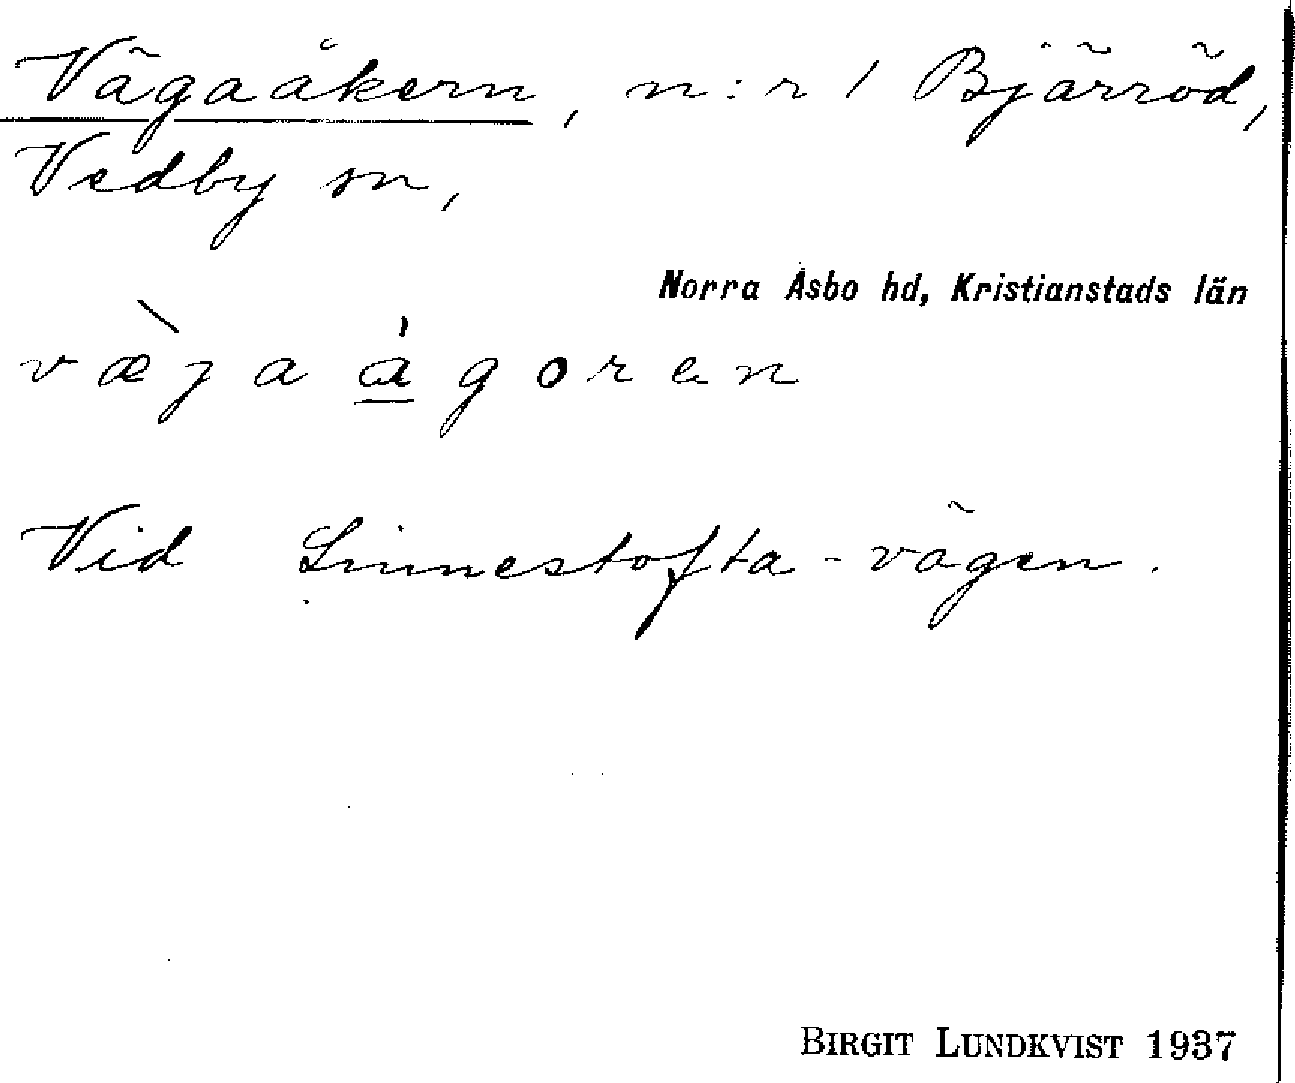 Vägaåkern, n:r 1 Bjärröd,
Vedby sn,
Norra Åsbo hd, Kristianstads län
væ̀ja á̱goren
Vid Linnestofta-vägen.
BIRGIT LUNDKVIST 1937